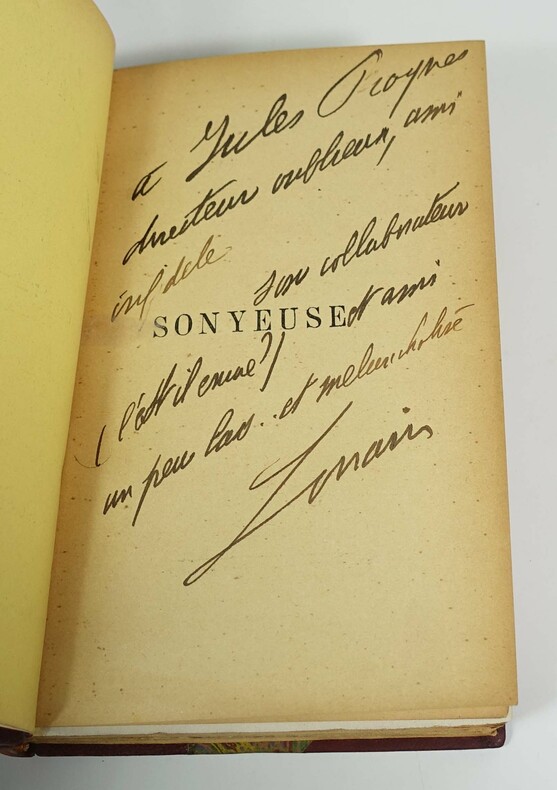 à Jules Roques
directeur oublieux, ami
infidèle
son collaborateur
SONYEUSE et ami
(l'est il encore?)
un peu las.. et mélancholisé
Lorrain